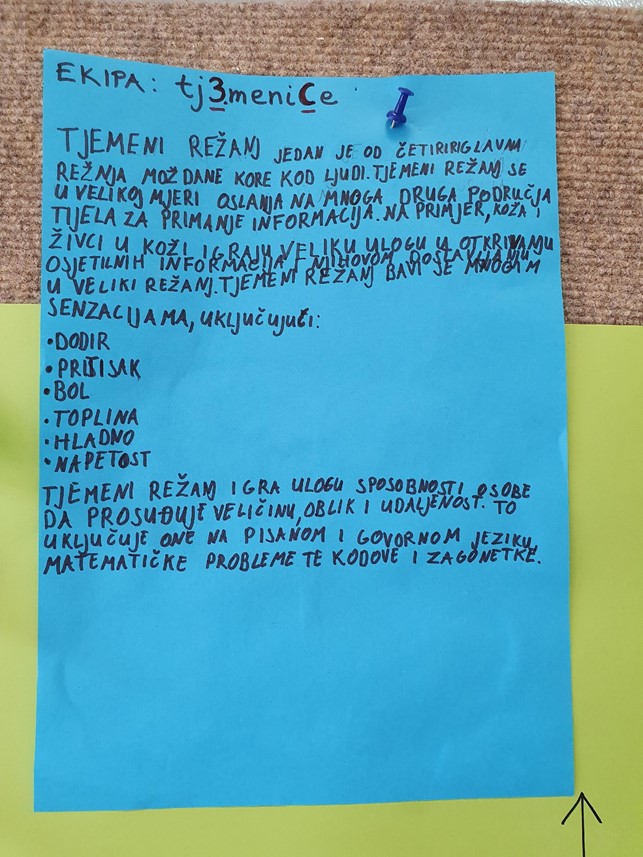 EKIPA: tj3meniCe
TJEMENI REŽANJ JEDAN JE OD ČETIRIRIGLAVNA
REŽNJA MOŽDANE KORE KOD LJUDI. TJEMENI REŽANJ SE
U VELIKOJ MJERI OSLANJA NA MNOGA DRUGA PODRUČJA
TIJELA ZA PRIMANJE INFORMACIJA. NA PRIMJER, KOŽA I
ŽIVCI U KOŽI IGRAJU VELIKU ULOGU U OTKRIVANJU
OSJETILNIH INFORMACIJA I NJIHOVOM DOSTAVLJANJU
U VELIKI REŽANJ. TJEMENI REŽANJ BAVI SE MNOGIM
SENZACIJAMA, UKLJUČUJUĆI:
•DODIR
•PRITISAK
•BOL
•TOPLINA
•HLADNO
•NAPETOST
TJEMENI REŽANJ IGRA ULOGU SPOSOBNOSTI OSOBE
DA PROSUĐUJE VELIČINU, OBLIK I UDALJENOST. TO
UKLJUČUJE ONE NA PISANOM I GOVORNOM JEZIKU,
MATEMATIČKE PROBLEME TE KODOVE I ZAGONETKE.